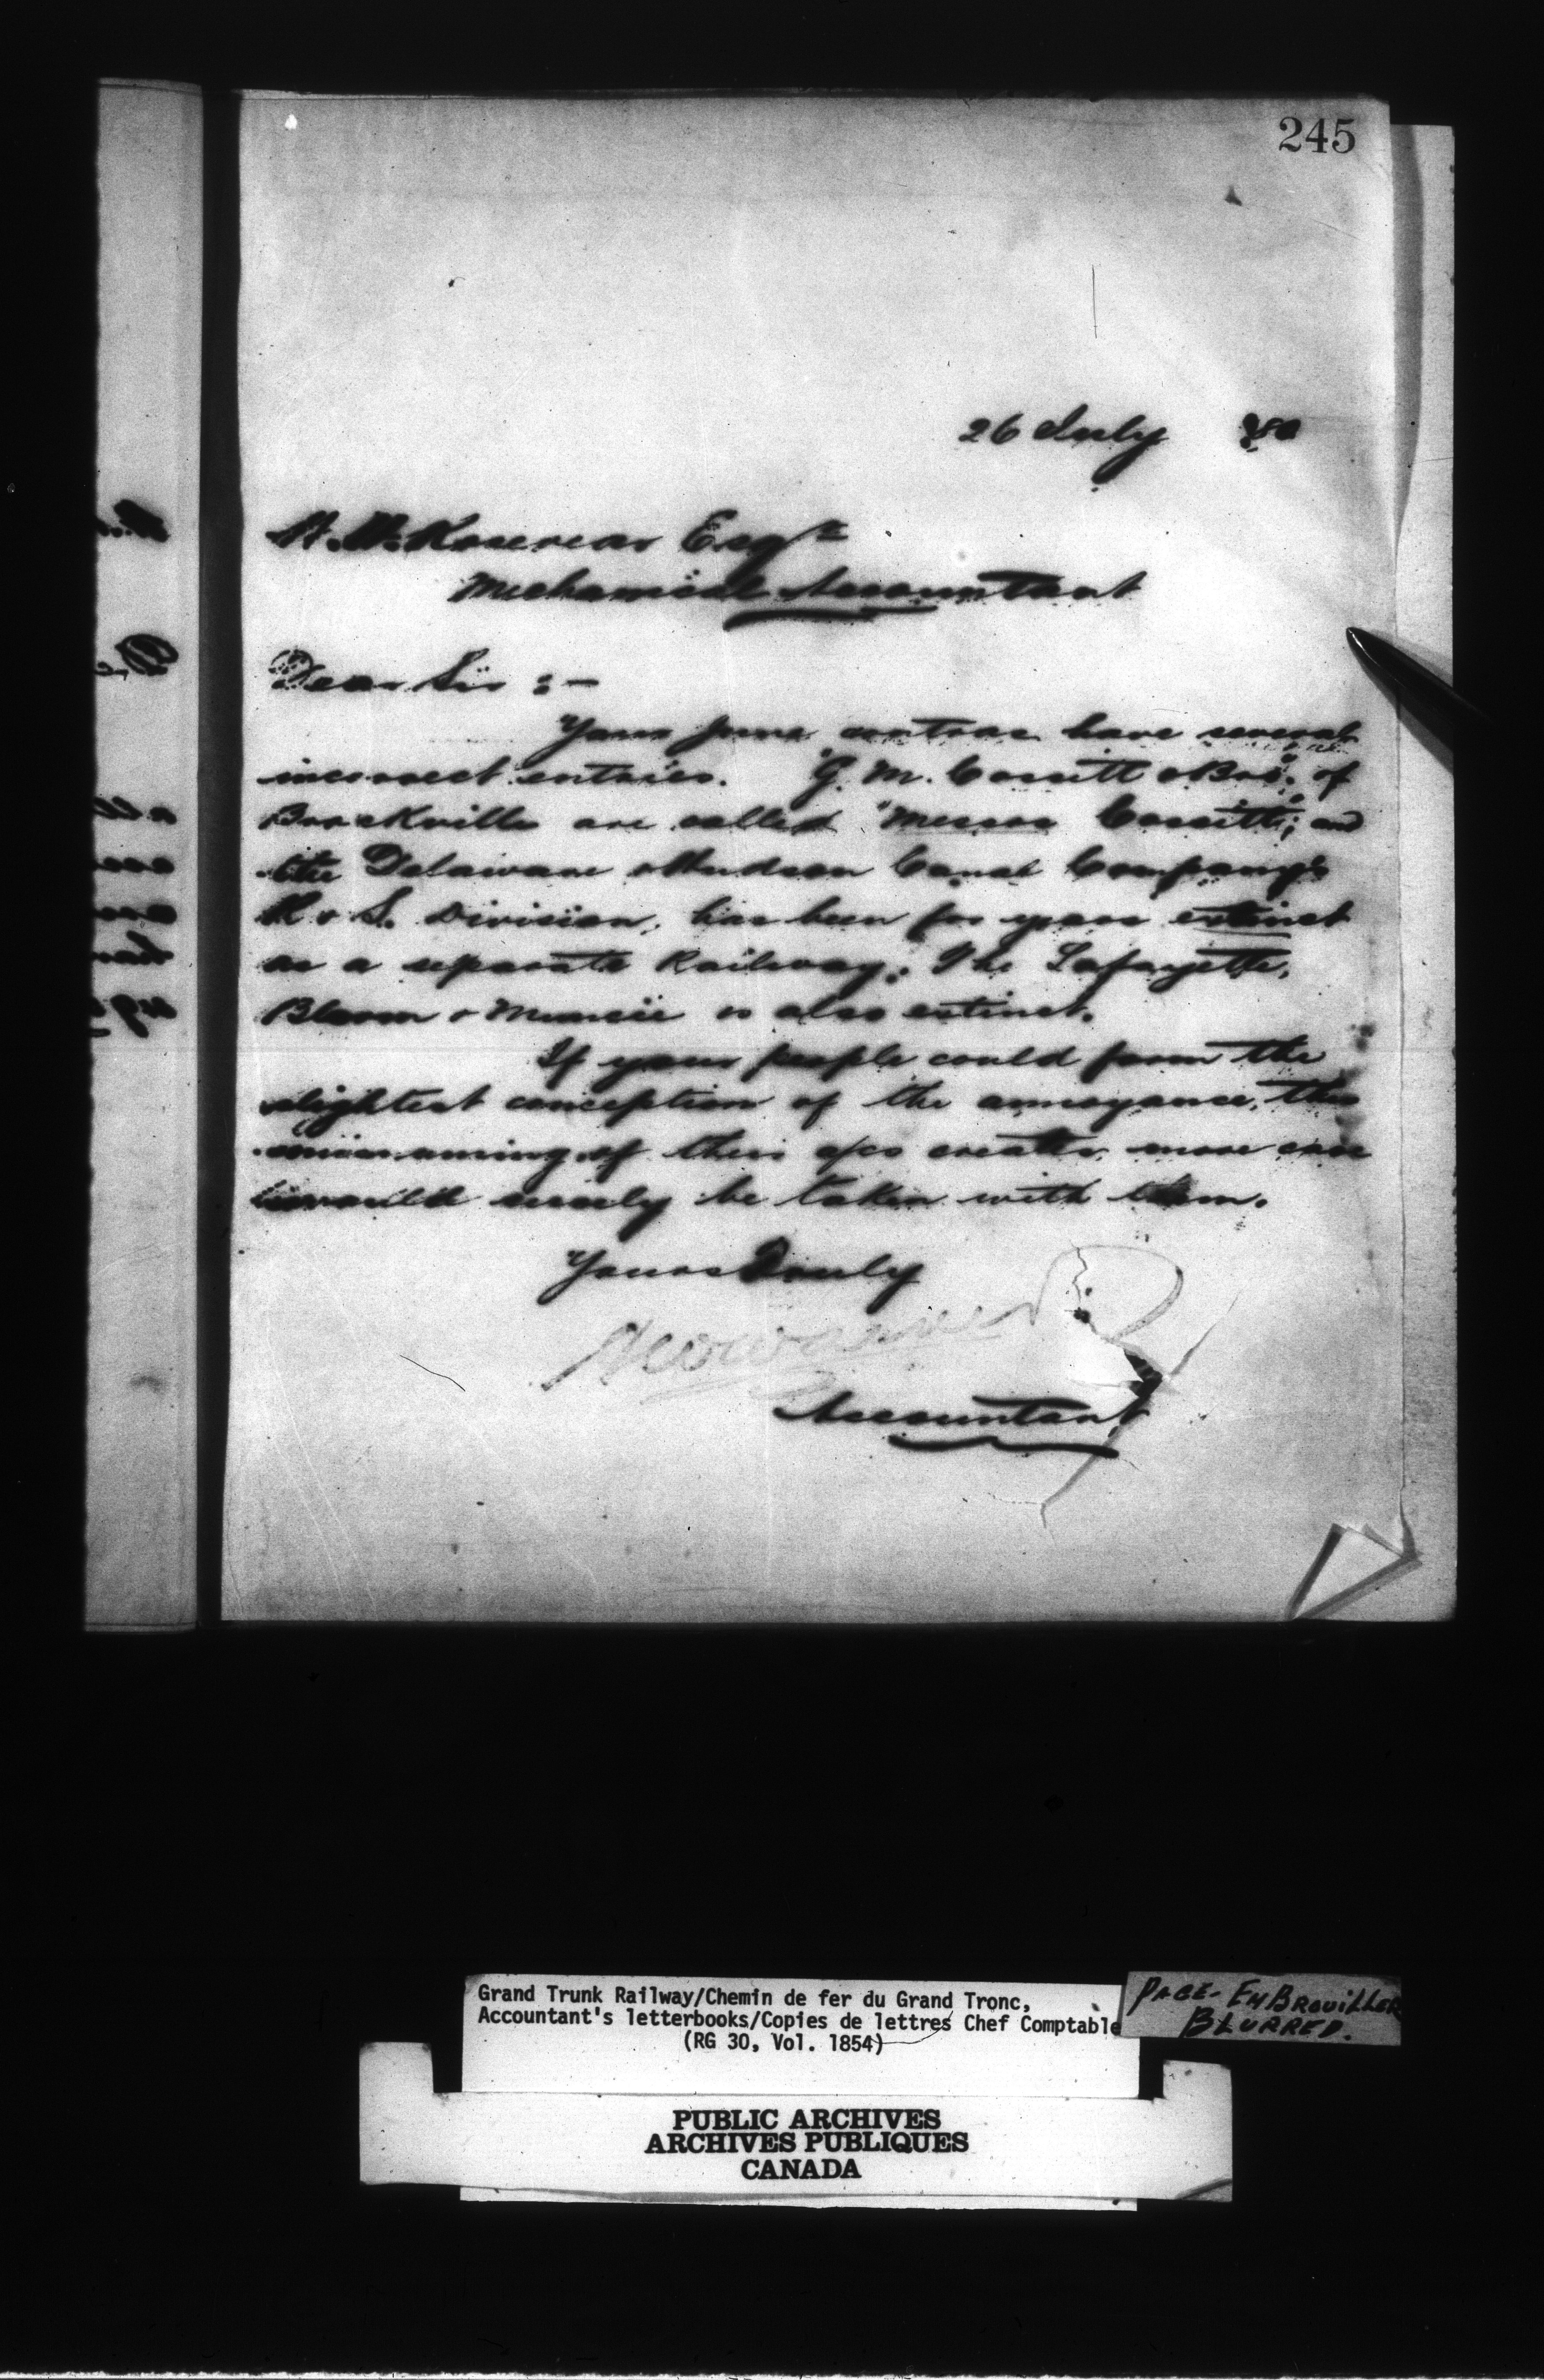 245
26 July 80
Esqre
Mechanical Accountant
Dear Sir :-
Your June contras have several
incorrect entries. "G. M. Cossitt & Bro." of
Brockville are called "Messrs Cossitt"; and
the Delaware & Hudson Canal Company's
R & S. Division, has been for years extinct
as a separate Railway. The Lafayette,
Bloom & Muncie is also extinct.
If your people could form the
slightest conception of the annoyance, this
misnaming of their a/cs creates more care
would surely be taken with them.
Yours Truly
Accountant
Grand Trunk Railway/Chemin de fer du Grand Tronc,
Accountant's letterbooks/Copies de lettres Chef Comptable
(RG 30, Vol. 1854)
PAGE- EMBROUILLER
BLURRED.
PUBLIC ARCHIVES
ARCHIVES PUBLIQUES
CANADA